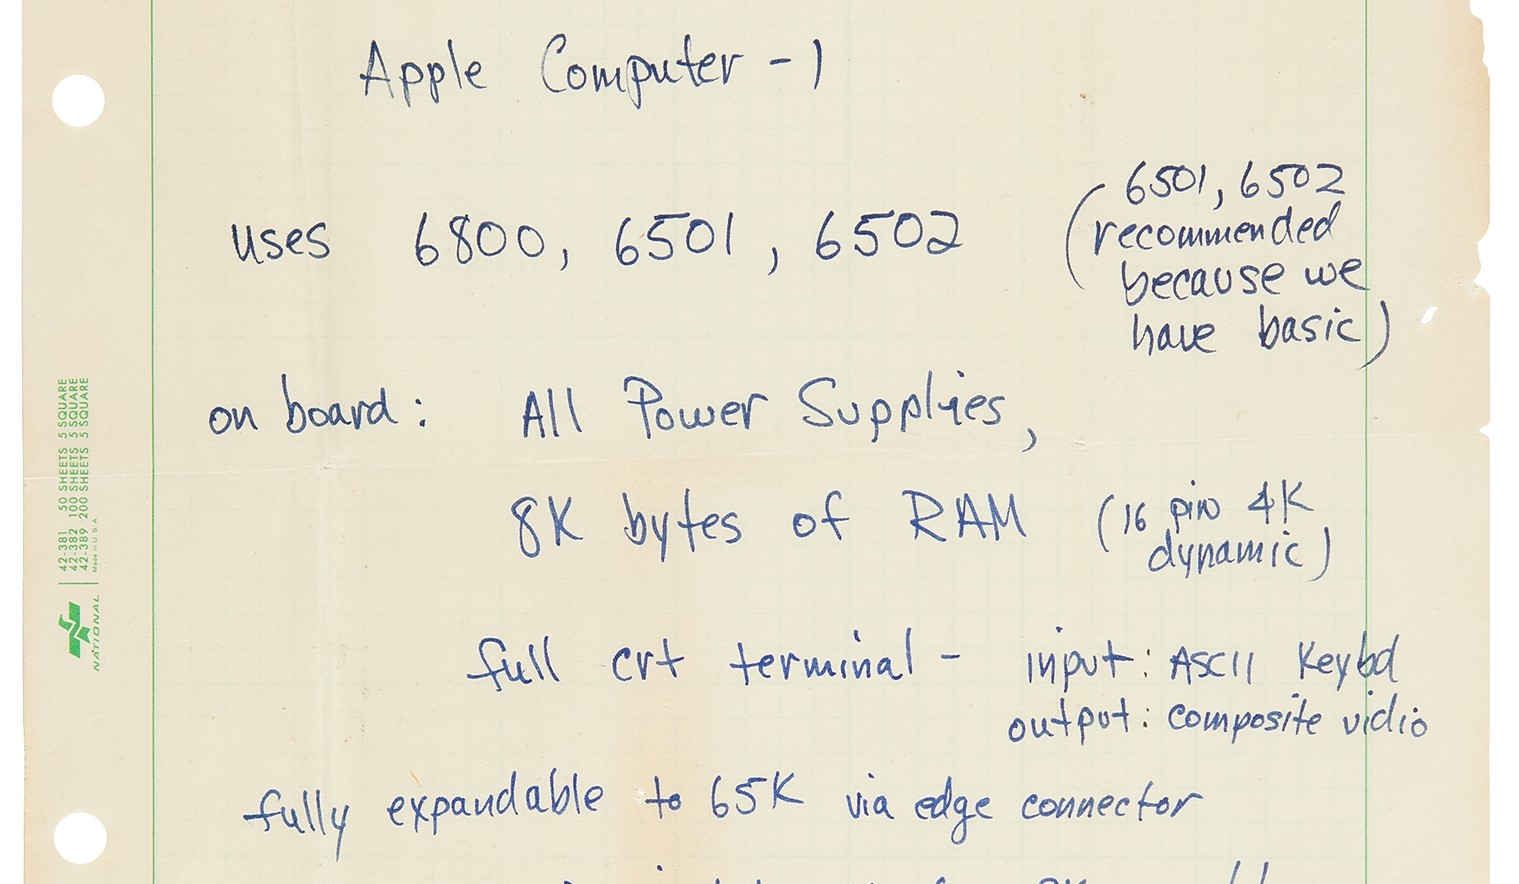 Apple Computer - 1
6501, 6502
uses 6800, 6501, 6502 (recommended
because we
have basic)
on board: All Power Supplies,
8K bytes of RAM (16 pin 4K
dynamic)
full crt terminal - input: ASCII Keybd
output: composite vidio
fully expandable to 65K via edge connector
42-381 50 SHEETS 5 SQUARE
42-382 100 SHEETS 5 SQUARE
42-389 200 SHEETS 5 SQUARE
Made in U.S.A.
NATIONAL